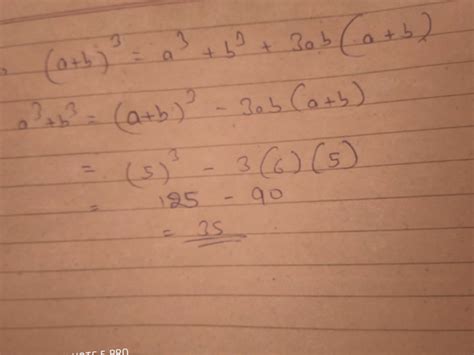 (a+b)³ = a³ + b³ + 3ab(a+b)
a³+b³ = (a+b)³ - 3ab(a+b)
= (5)³ - 3(6)(5)
= 125 - 90
= 35